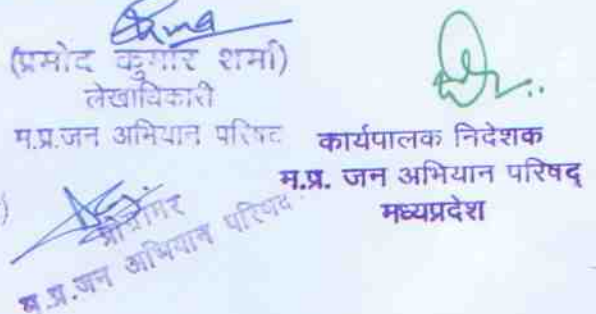 (प्रमोद कुमार शर्मा)
लेखाधिकारी
म.प्र.जन अभियान परिषद
कार्यपालक निदेशक
म.प्र. जन अभियान परिषद्
मध्यप्रदेश
)
म.प्र.जन अभियान परिषद